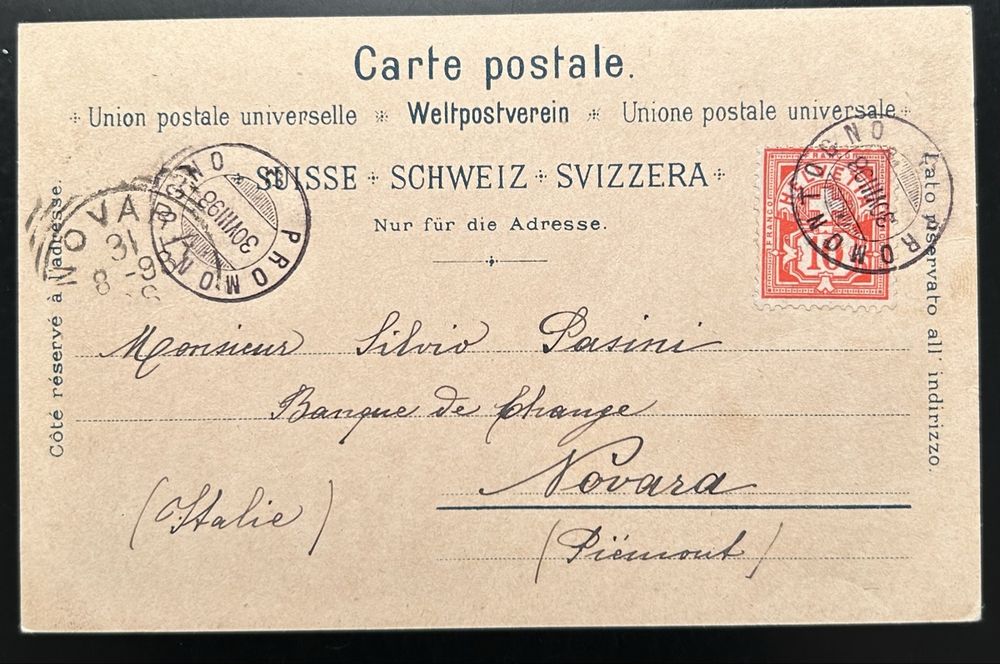 Carte postale.
Union postale universelle * Weltpostverein * Unione postale universale
SUISSE + SCHWEIZ + SVIZZERA +
Nur für die Adresse.
Côté réservé à l'adresse.
Lato riservato all' indirizzo.
NOVARA
31
8-98
PROMONTOGNO
30 VIII 98
FRANCO
10
PROMONTOGNO
30 VIII 98
Monsieur Silvio Pasini
Banque de Change
Novara
(Italie)
(Piémont)